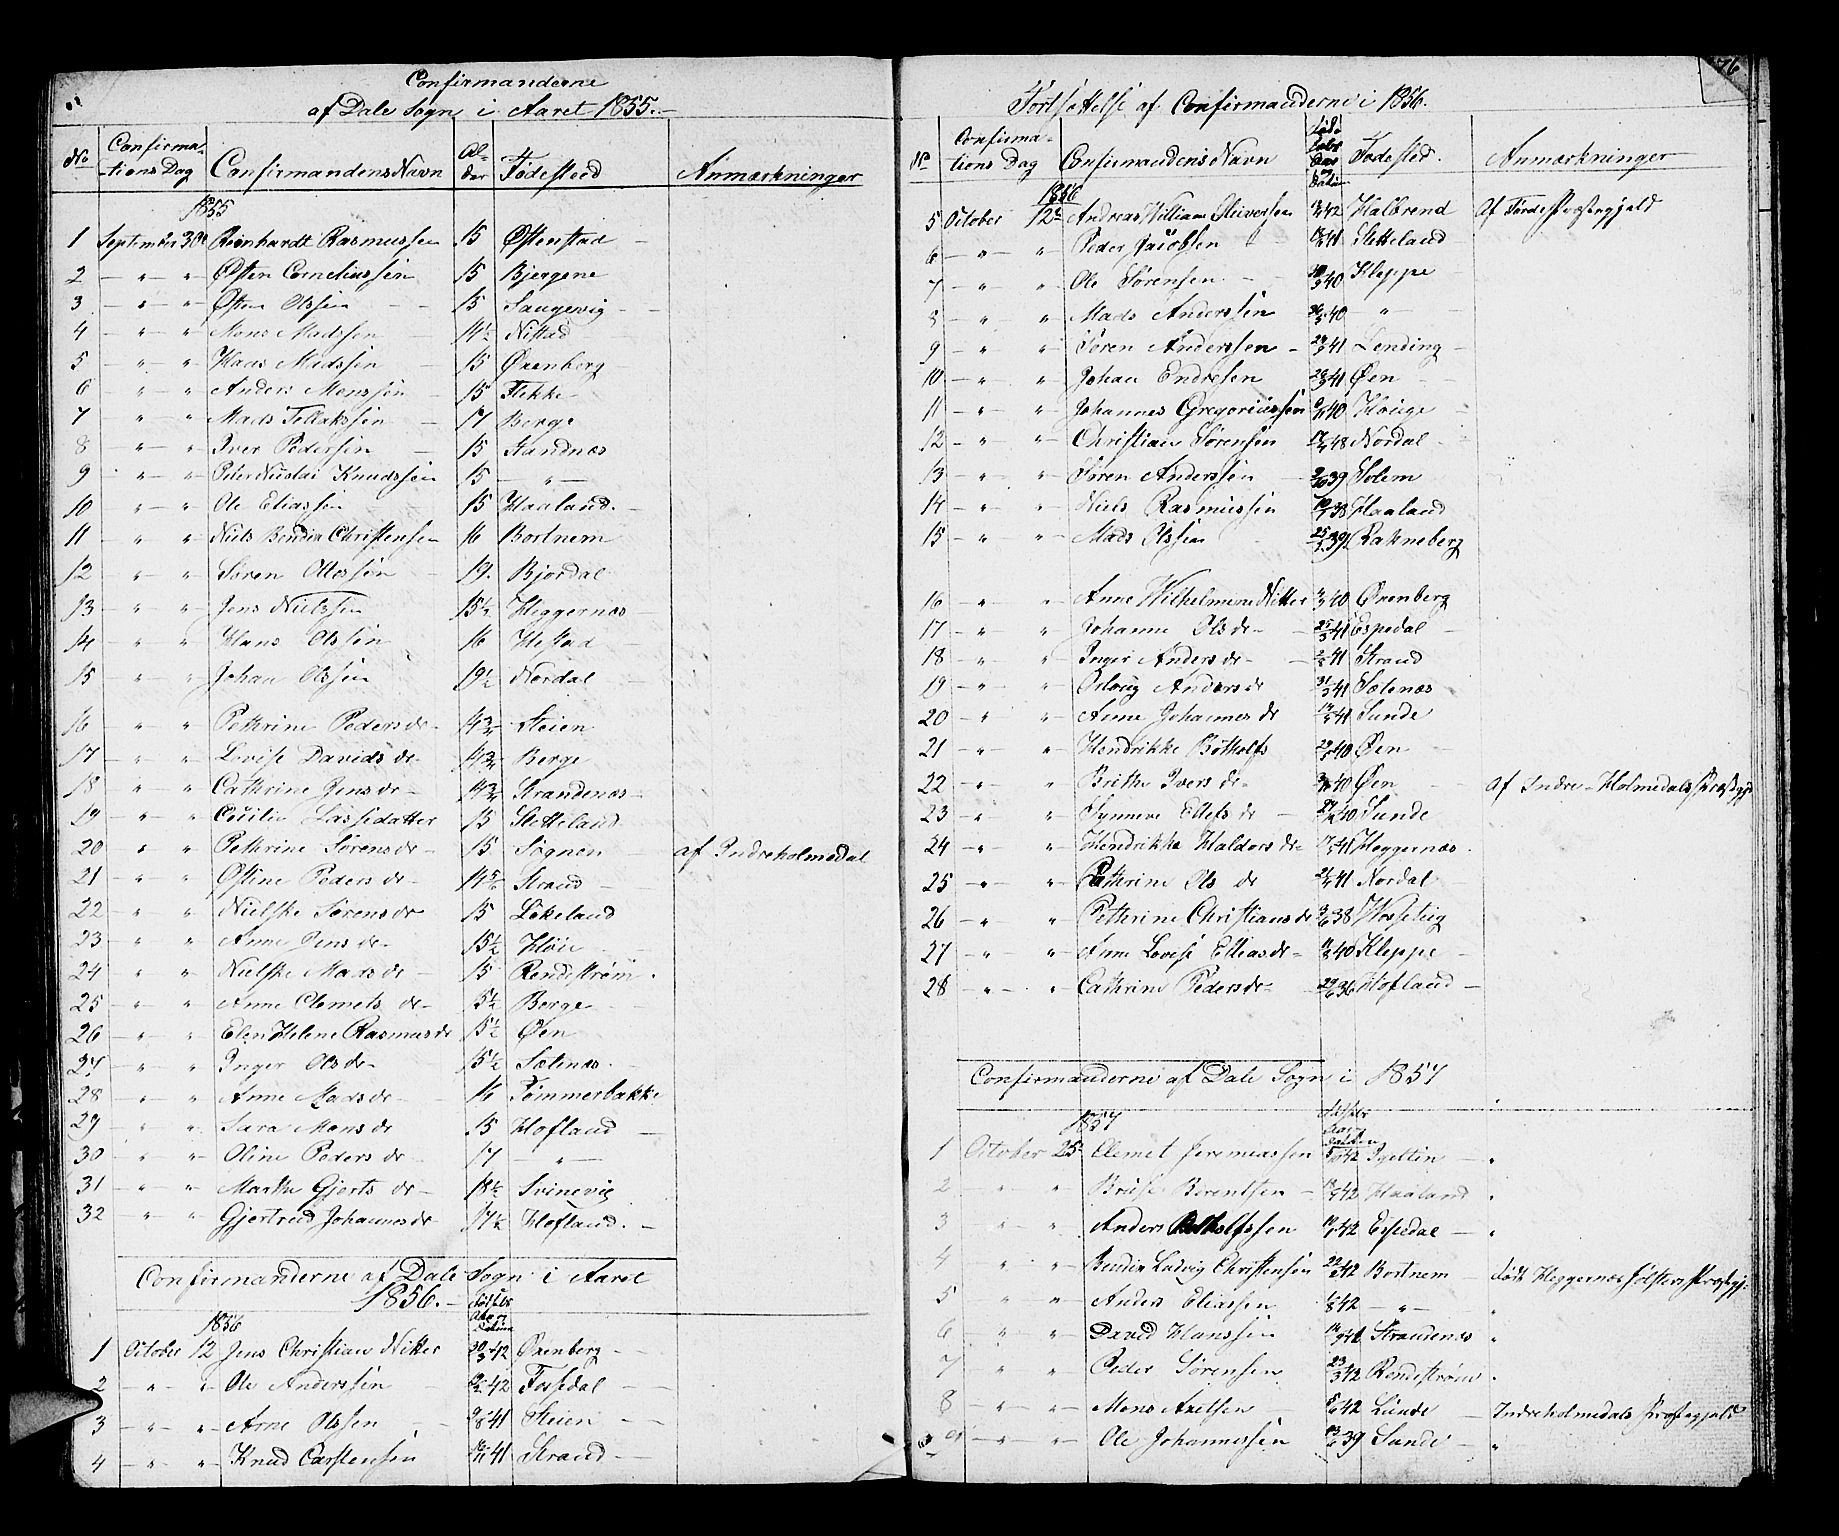 Confirmanderne
af Dale Sogn i Aaret 1855.
No Confirmations Dag Confirmandens Navn Alder Fødested Anmærkninger
1855
1 September 30te Reinhardt Rasmussen 15 Østenstad
2 — " — " Østen Corneliussen 15 Bjergene
3 — " — " Østen Olssen 15 Saugevig
4 — " — " Mons Madssen 14½ Nistad
5 — " — " Hans Madssen 15 Ørenberg
6 — " — " Anders Monssen 15 Flekke
7 — " — " Mads Tollakssen 17 Berge
8 — " — " Iver Pedersen 15 Standnæs
9 — " — " Peter Nicolai Knudssen 15 — " —
10 — " — " Ole Eliassen 15 Haaland
11 — " — " Niels Bendix Christensen 16 Bortnem
12 — " — " Søren Ottessen 19 Bjordal
13 — " — " Jens Nielssen 15½ Heggernæs
14 — " — " Hans Olssen 16 Hestad
15 — " — " Johan Olssen 19½ Nordal
16 — " — " Pethrine Pedersdr 14¾ Steien
17 — " — " Lovise Davidsdr 14¾ Berge
18 — " — " Cathrine Jensdr 14¾ Strandenæs
19 — " — " Cecilia Lassedatter 15 Sletteland
20 — " — " Pethrine Sørensdr 15 Sognen af Indreholmedal
21 — " — " Østine Pedersdr Strand
22 — " — " Nielske Sørensdr 15 Løkeland
23 — " — " Anne Jensdr 15½ Høie
24 — " — " Nielske Madsdr 15 Rendestrøm
25 — " — " Anne Clemetsdr 15½ Berge
26 — " — " Elen Helene Rasmusdr 15½ Øen
27 — " — " Inger Olsdr 15½ Sætenæs
28 — " — " Anne Madsdr 16 Tømmerbakke
29 — " — " Sara Monsdr 15 Hofland
30 — " — " Oline Pedersdr 17 — " —
31 — " — " Marthe Gjertsdr 18½ Svinevig
32 — " — " Gjertrud Johannesdr 17½ Hofland
Confirmanderne af Dale Sogn i Aaret
1856.
1856
1 October 12 Jens Christian Nitter 20/3 42 Ørenberg
2 — " — " Ole Anderssen 42 Fossedal
3 — " — " Arne Olssen 41 Steien
4 — " — " Knud Carstensen 41 Strand
76
Fortsættelse af Confirmanderne i 1856.
No Confirmations Dag Confirmandens Navn Fødested. Anmærkninger
1856
5 October 12te Andreas William Sliversen 42 Halbrend Af Førde Præstegjæld
6 — " — " Peder Jacobsen 41 Sletteland
7 — " — " Ole Sørensen 40 Kleppe
8 — " — " Mads Anderssen 40 — " —
9 — " — " Søren Anderssen 41 Lending
10 — " — " Johan Endresen 41 Øen
11 — " — " Johannes Gregoriussen 40 Houge
12 — " — " Christian Sørensen Nordal
13 — " — " Søren Anderssen 39 Solem
14 — " — " Niels Rasmussen 38 Haaland
15 — " — " Mads Olssen 39 Rahneberg
16 — " — " Anne Wilhelmine Nitter 40 Ørenberg
17 — " — " Johanne Olsdr 25/3 41 Espedal
18 — " — " Inger Andersdr 41 Strand
19 — " — " Oslaug Andersdr 31/3 41 Sætenæs
20 — " — " Anne Johannesdr 41 Sunde
21 — " — " Hendrikke Bøtholfs 40 Øen
22 — " — " Brithe Iversdr 40 Øen Af Indre-Holmedals Præstegjd
23 — " — " Synneve Ellefsdr 40 Sunde
24 — " — " Hendrikke Haldorsdr 41 Heggernæs
25 — " — " Cathrine Olsdr 41 Nordal
26 — " — " Pethrine Christiansdr 38 Wossetig
27 — " — " Anne Lovise Elleasdr 40 Kleppe
28 — " — " Cathrine Pedersdr 36 Hofland
Confirmanderne af Dale Sogn i 1857
1857
1 October 25 Clemet Jeremiassen 42 "
2 " " Bruse Berentsen 42 Haaland "
3 " " Anders Botholfssen 42 Espedal "
4 " " Bendix Ludvig Christensen 42 Bortnem født Heggernæs Jølsters Præstegj:
5 " " Anders Eliassen 42 — " — "
6 " " David Hanssen Strandenæs "
7 " " Peder Sørensen 23/3 42 Rendestrøm "
8 " " Mons Axelsen 42 Lunde Indreholmedals Præstegjæld
9 " " Ole Johannessen 39 Sunde "